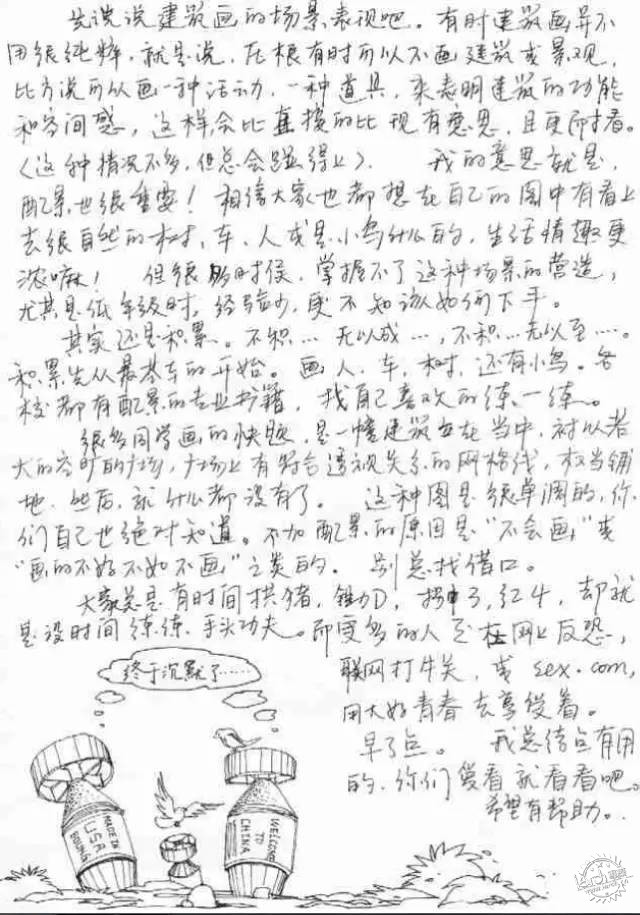 先谈谈建筑画的场景表现吧。有时建筑画并不
用很纯粹，就是说，在根有时可以不画建筑或景观，
比方说可以画一种活动，一种道具，来表明建筑的功能
和空间感，这样会比直接的比现有意思，且更耐看。
（这种情况不多，但总会碰得上）． 我的意思就是，
配景也很重要！相信大家也都想在自己的图中有看上
去很自然的树、车、人或是小鸟什么的，生活情趣更
浓嘛！ 但很多时候，掌握不了这种场景的营造，
尤其是低年级时，经验少，更不知该如何下手。
其实还是积累。不积…无以成…，不积…无以至…。
积累先从最基本的开始。画人、车、树，还有小鸟。各
校都有配景的专业书籍，找自己喜欢的练一练。
很多同学画的快题，是一幢建筑立在当中，衬以若
大的空旷的广场，广场上有符合透视关系的网格线，权当铺
地．然后，就什么都没有了。 这种图是很单调的，你
们自己也绝对知道。不加配景的原因是“不会画，”或
“画的不好不如不画，”之类的． 别总找借口。
大家总是有时间拱猪，锄大D，拐3，红4，却就
是没时间练练手头功夫。而更多的人至在网上反恐，
联网打牛关，或sex.com，
用大好青春去享受着。
早了点。 我总结点有用
的，你们爱看就看看吧。
希望有帮助..
终于沉默了……
MADE IN
USA
BOEING
WELCOME
TO
CHINA